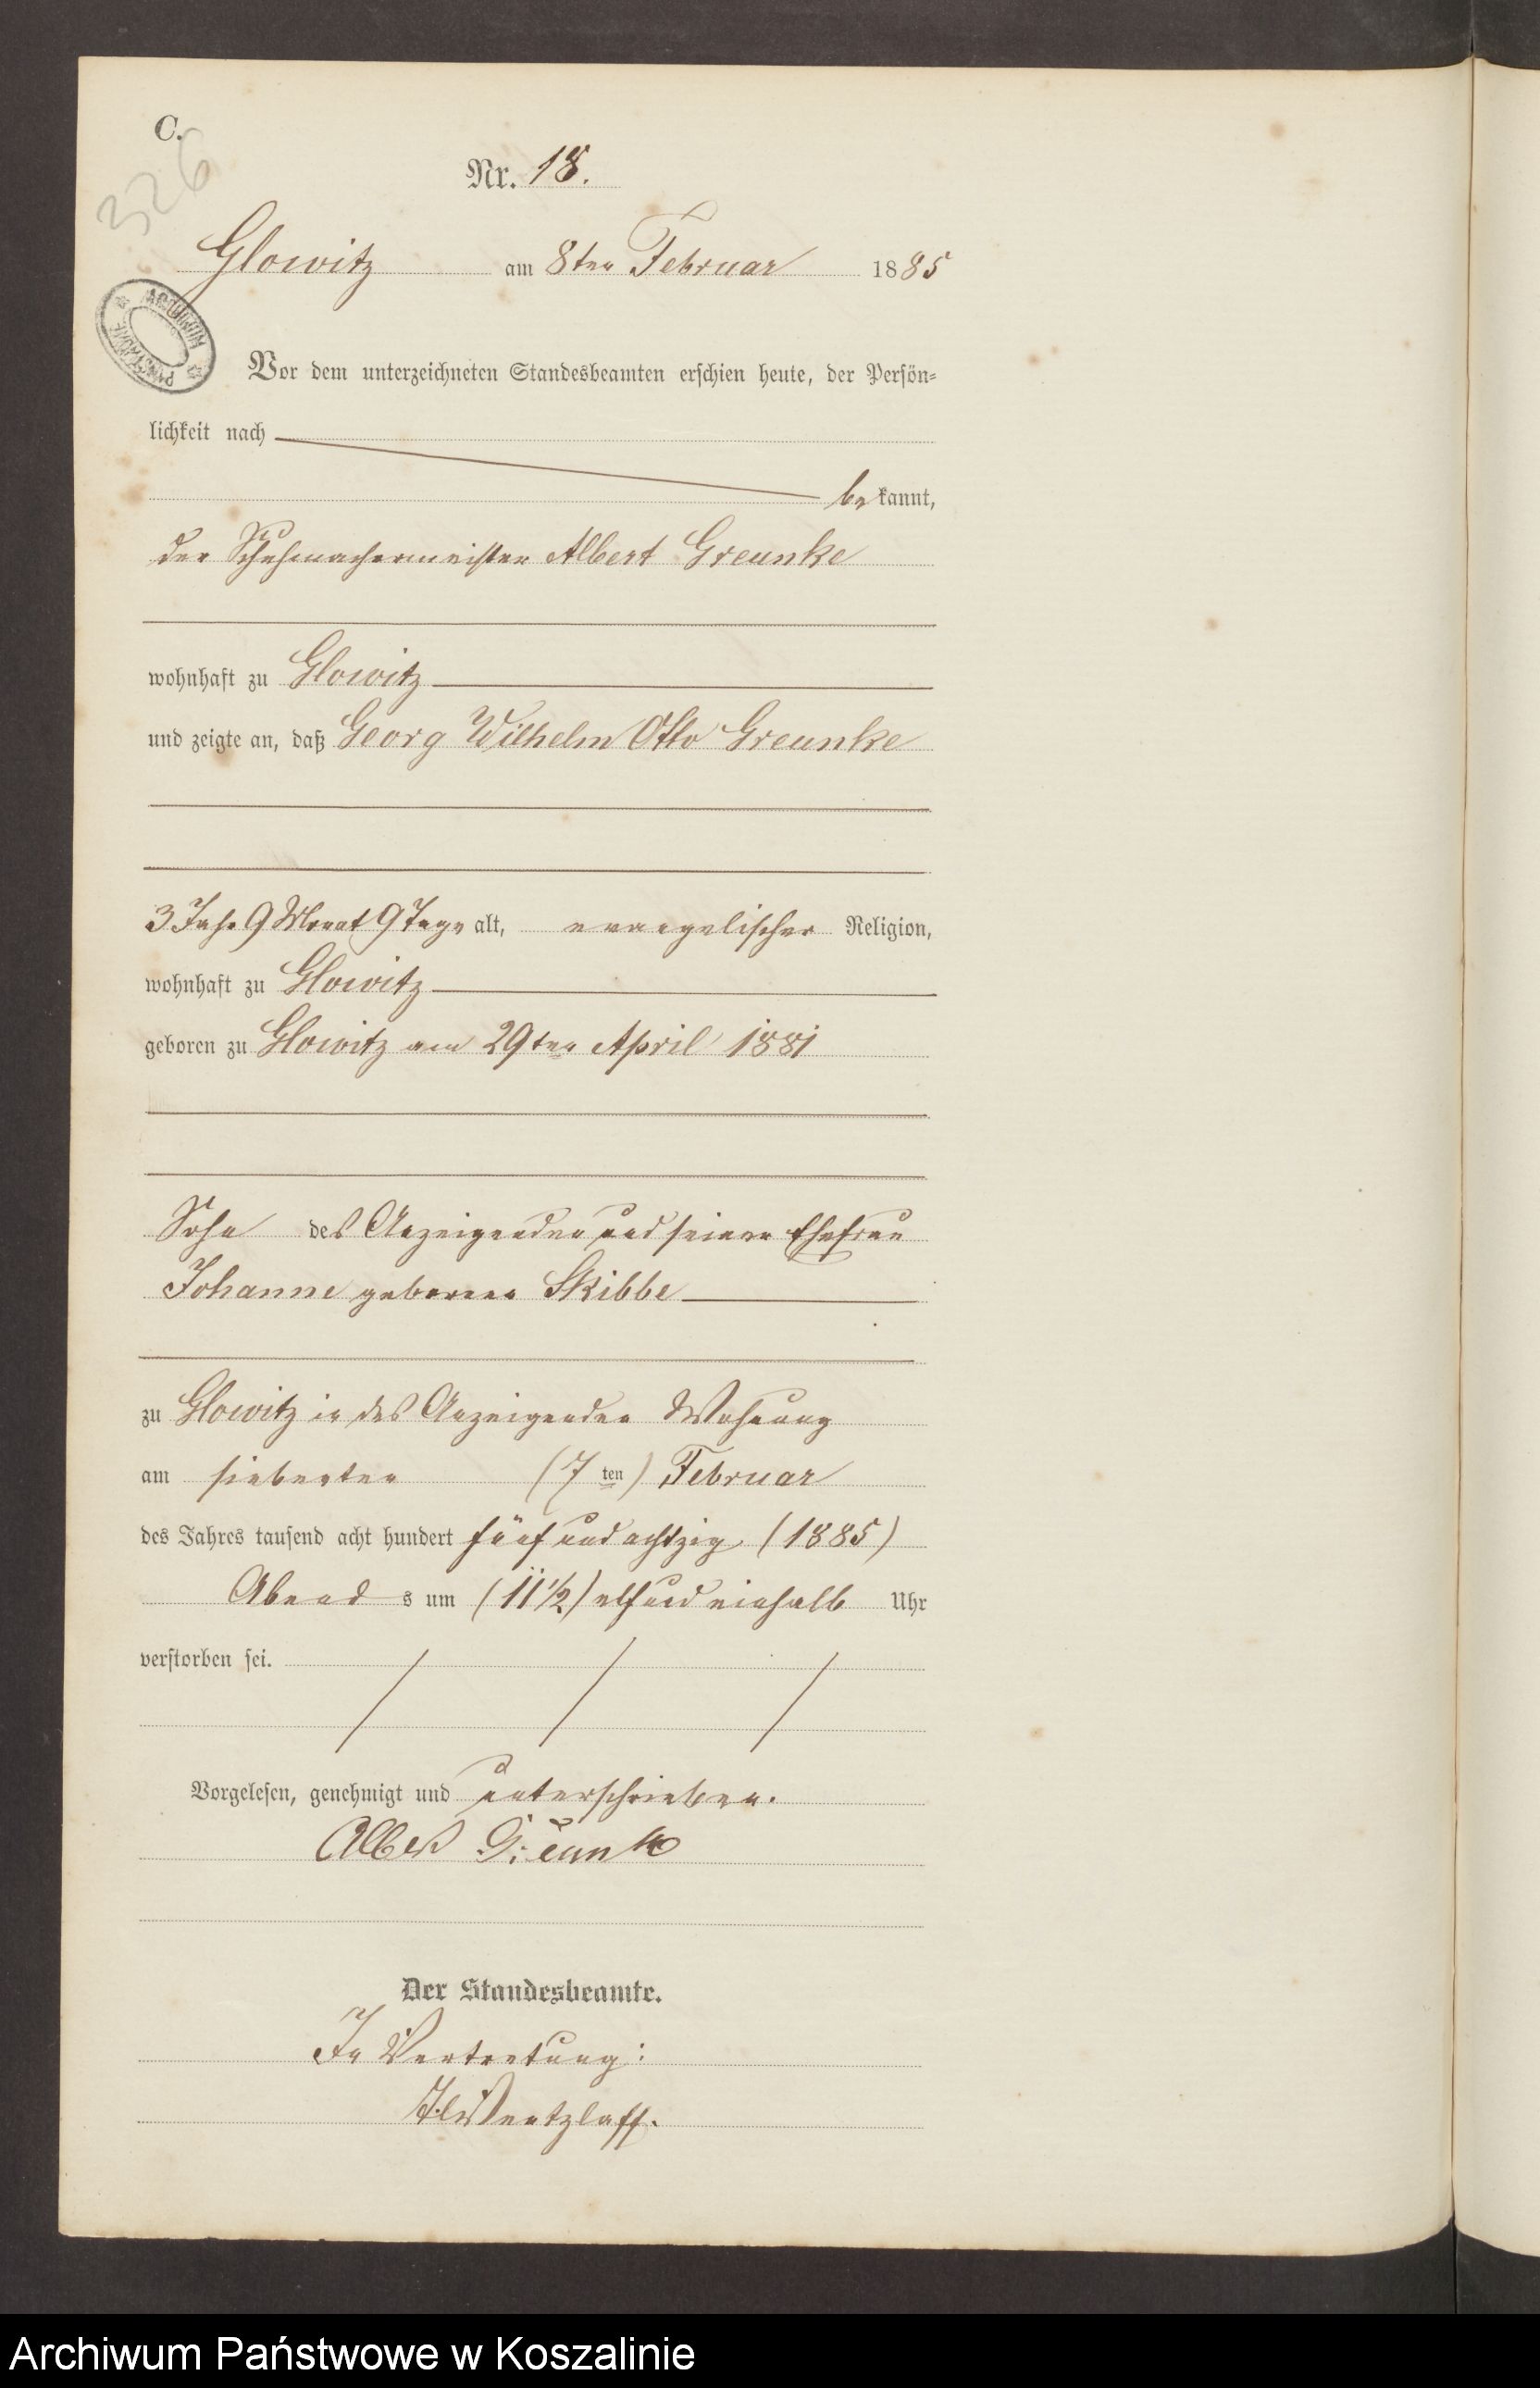 C.
326
Nr. 18.
Glowitz am 8ten Februar 1885
ARCHIWUM PAŃSTWOWE
Vor dem unterzeichneten Standesbeamten erschien heute, der Persön-
lichkeit nach
bekannt,
der Schuhmachermeister Albert Greunke
wohnhaft zu Glowitz
und zeigte an, daß Georg Wilhelm Otto Greunke
3 Jahr 9 Monat 9 Tage alt, evangelischer Religion,
wohnhaft zu Glowitz
geboren zu Glowitz am 29ten April 1881
Sohn des Anzeigenden und seiner Ehefrau
Johanne geborener Skibbe
zu Glowitz in des Anzeigenden Wohnung
am siebenten (7ten) Februar
des Jahres tausend acht hundert fünf und achtzig (1885)
Abends um (11 1/2) elf und einhalb Uhr
verstorben sei.
Vorgelesen, genehmigt und unterschrieben.
Albert Greunke
Der Standesbeamte.
In Vertretung:
Wentzlaff.
Archiwum Państwowe w Koszalinie